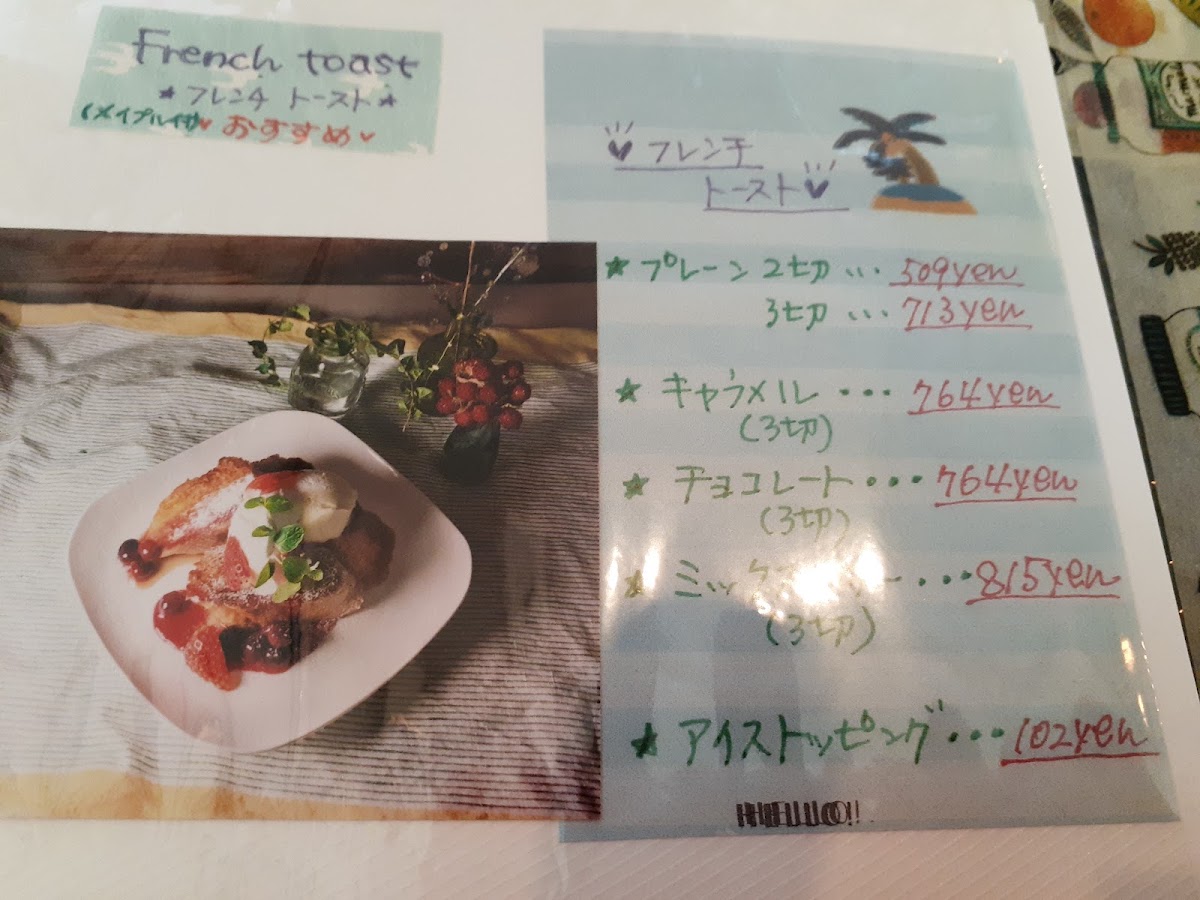 French toast
★フレンチ トースト★
(メイプル付 ♥おすすめ♥
♥フレンチ
トースト♥
★プレーン 2切 … 509yen
3切 … 713yen
★キャラメル ・・・ 764yen
(3切)
★チョコレート・・・764yen
(3切)
★ミックス ・・・815yen
(3切)
★アイストッピング・・・102yen